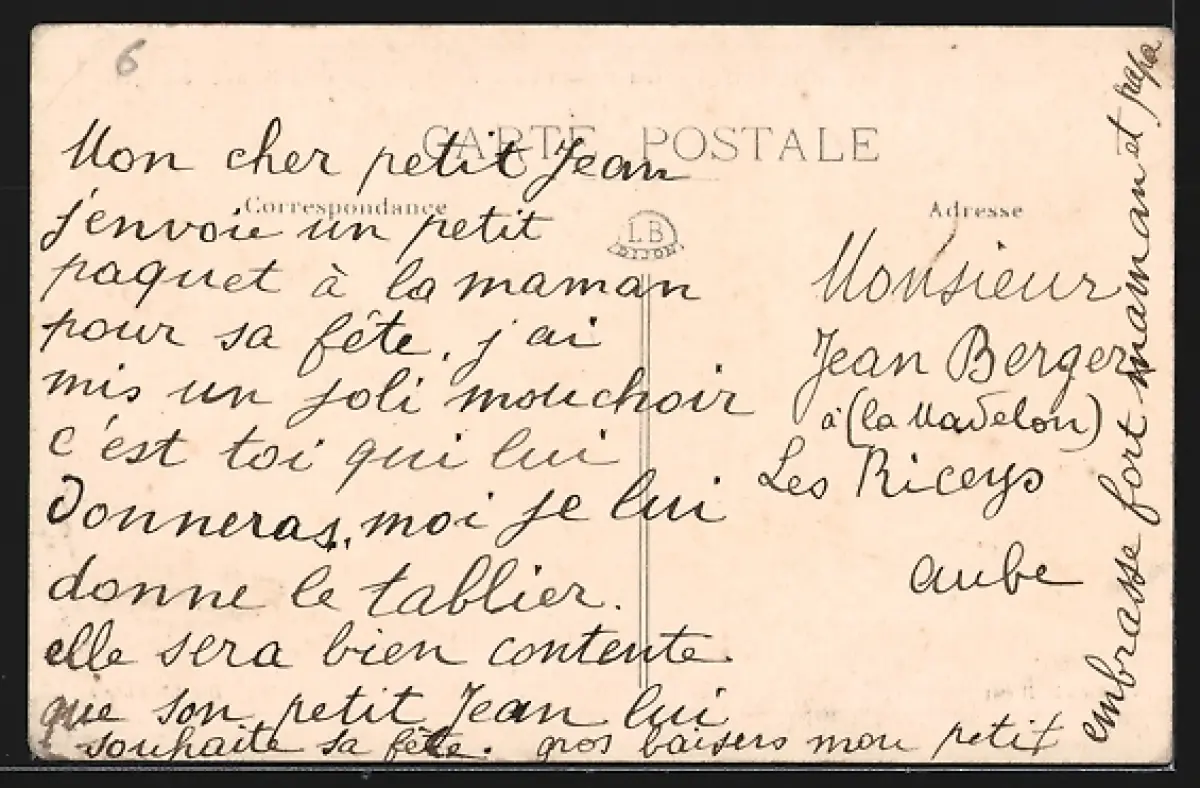 6
CARTE POSTALE
Correspondance
Adresse
LB
DIJON
Mon cher petit Jean
j'envoie un petit
paquet à la maman
pour sa fête, j'ai
mis un joli mouchoir
c'est toi qui lui
donneras, moi je lui
donne le tablier.
elle sera bien contente.
que son petit Jean lui
souhaite sa fête. gros baisers mon petit
embrasse fort maman et papa
Monsieur
Jean Berger
à (la Madelon)
Les Riceys
aube